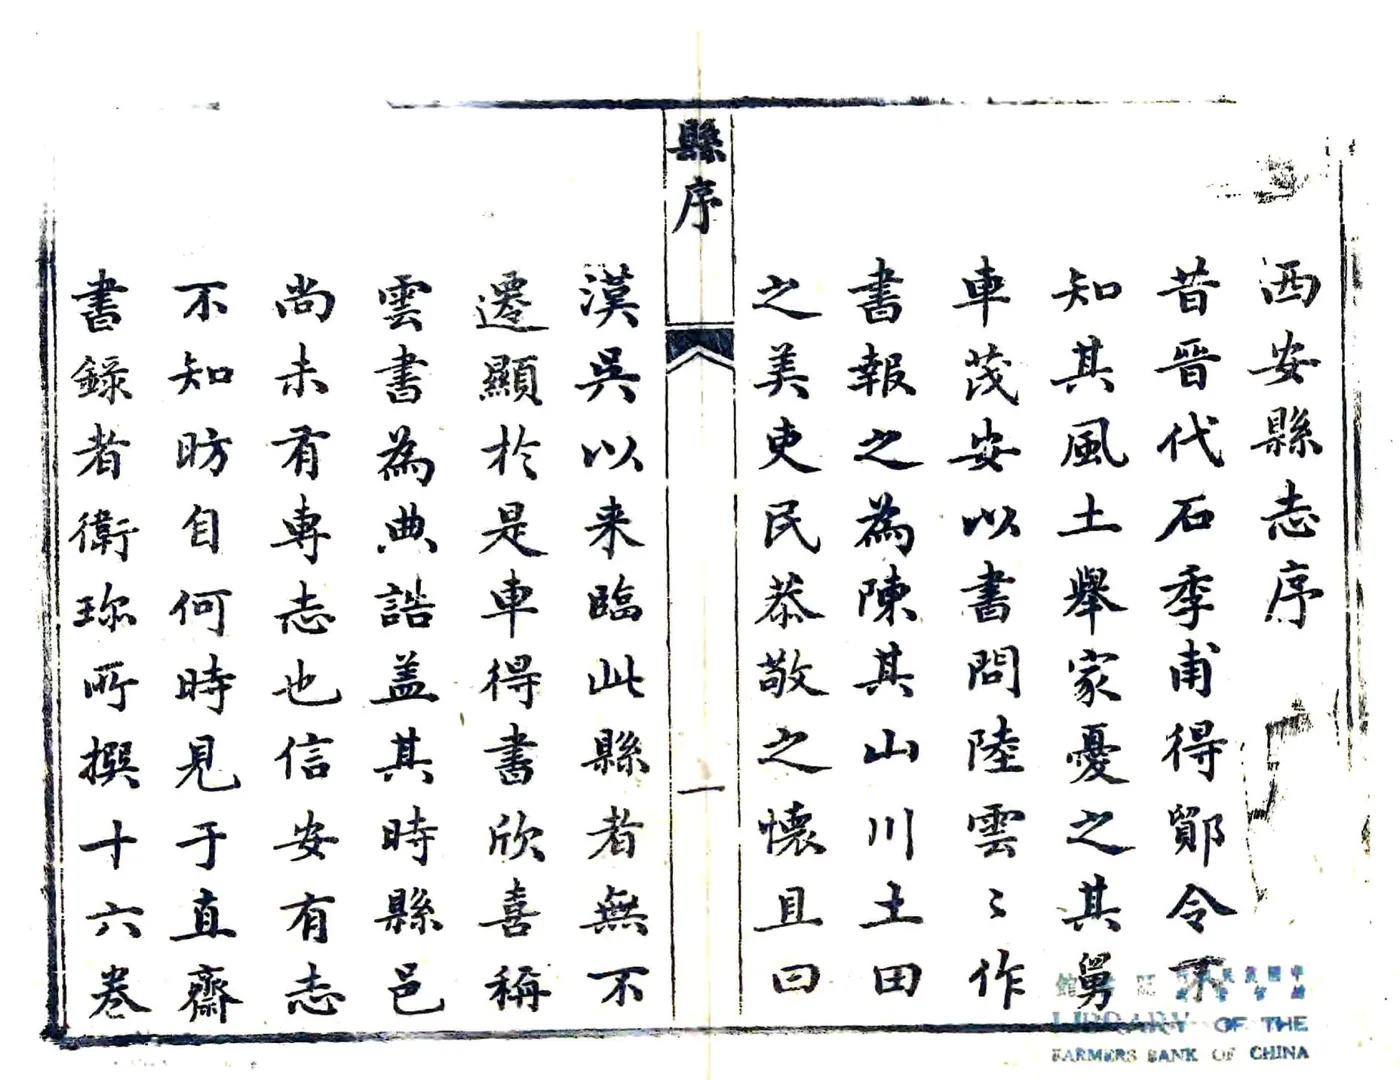 西安縣志序
昔晉代石季甫得鄮令不
知其風土舉家憂之其舅
車茂安以書問陸雲〻作
書報之為陳其山川土田
之美吏民恭敬之懷且曰
縣序
一
漢吳以来臨此縣者無不
遷顯於是車得書欣喜稱
雲書為典誥盖其時縣邑
尚未有專志也信安有志
不知昉自何時見于直齋
書錄者衛珎所撰十六卷
LIBRARY OF THE
FARMERS BANK OF CHINA